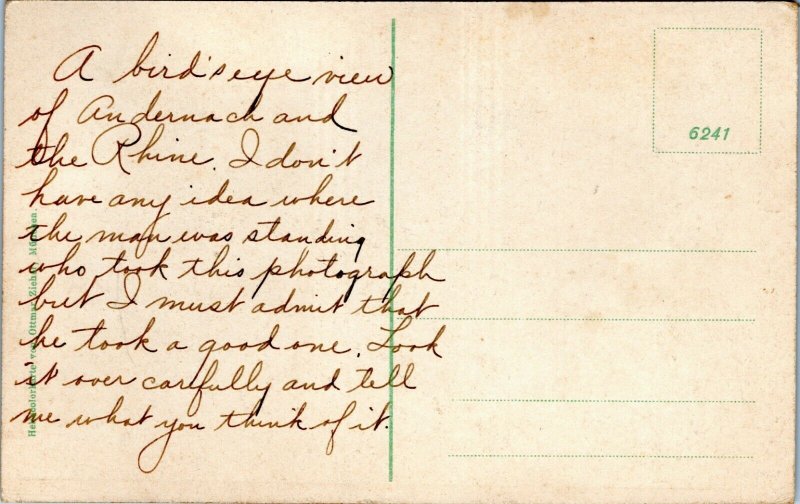 A bird's eye view
of Andernach and
the Rhine. I don't
have any idea where
the man was standing
who took this photograph
but I must admit that
he took a good one. Look
it over carfully and tell
me what you think of it.
6241
von Ottmar Zieher, München